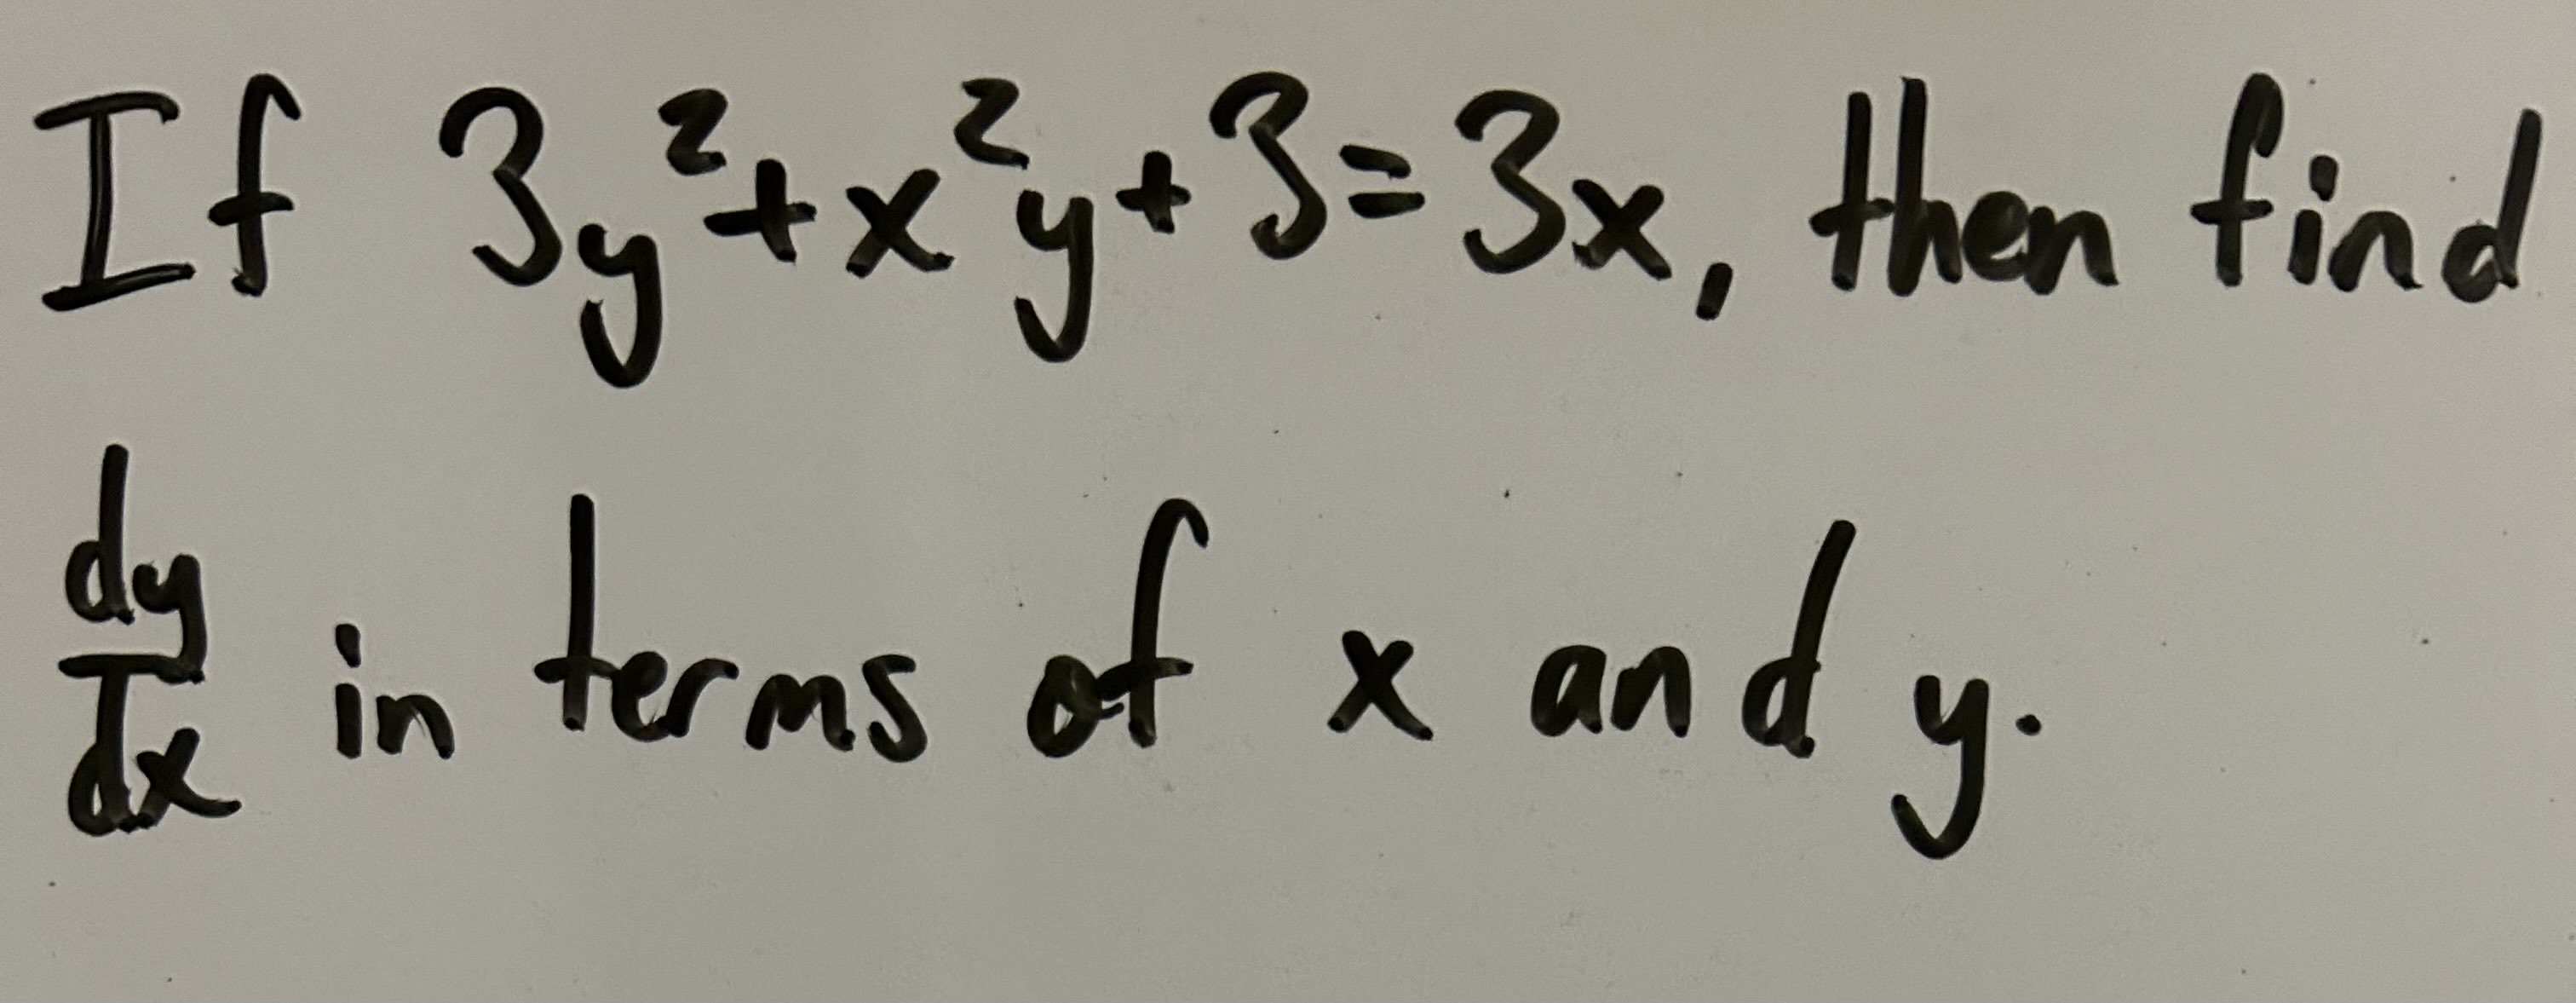 If 3y²+x²y+3=3x, then find
dy/dx in terms of x and y.